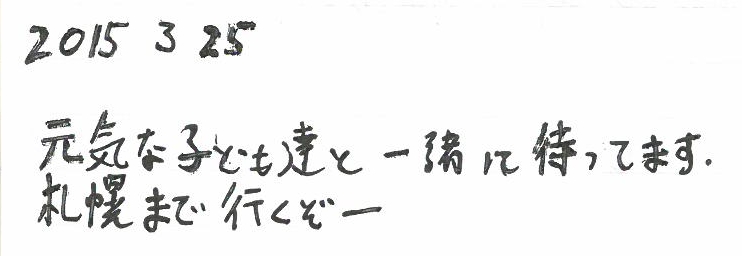 2015 3 25
元気な子ども達と一緒に待ってます.
札幌まで行くぞー